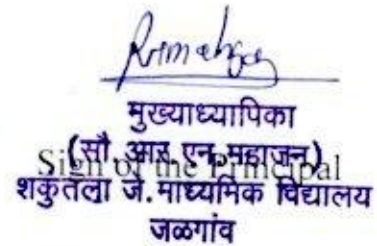 मुख्याध्यापिका
(सौ. आर. एन. महाजन)
Sign of the Principal
शकुंतला जे. माध्यमिक विद्यालय
जळगांव